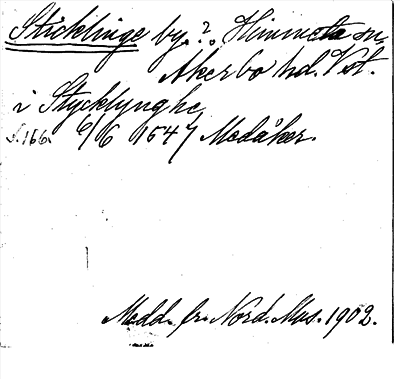 Sticklinge by.? Himmeta sn,
Åkerbo hd. Vstm.
i Stycklynghe
S. 166. 6/6 1547 Medåker.
Medd. fr. Nord. Mus. 1902.